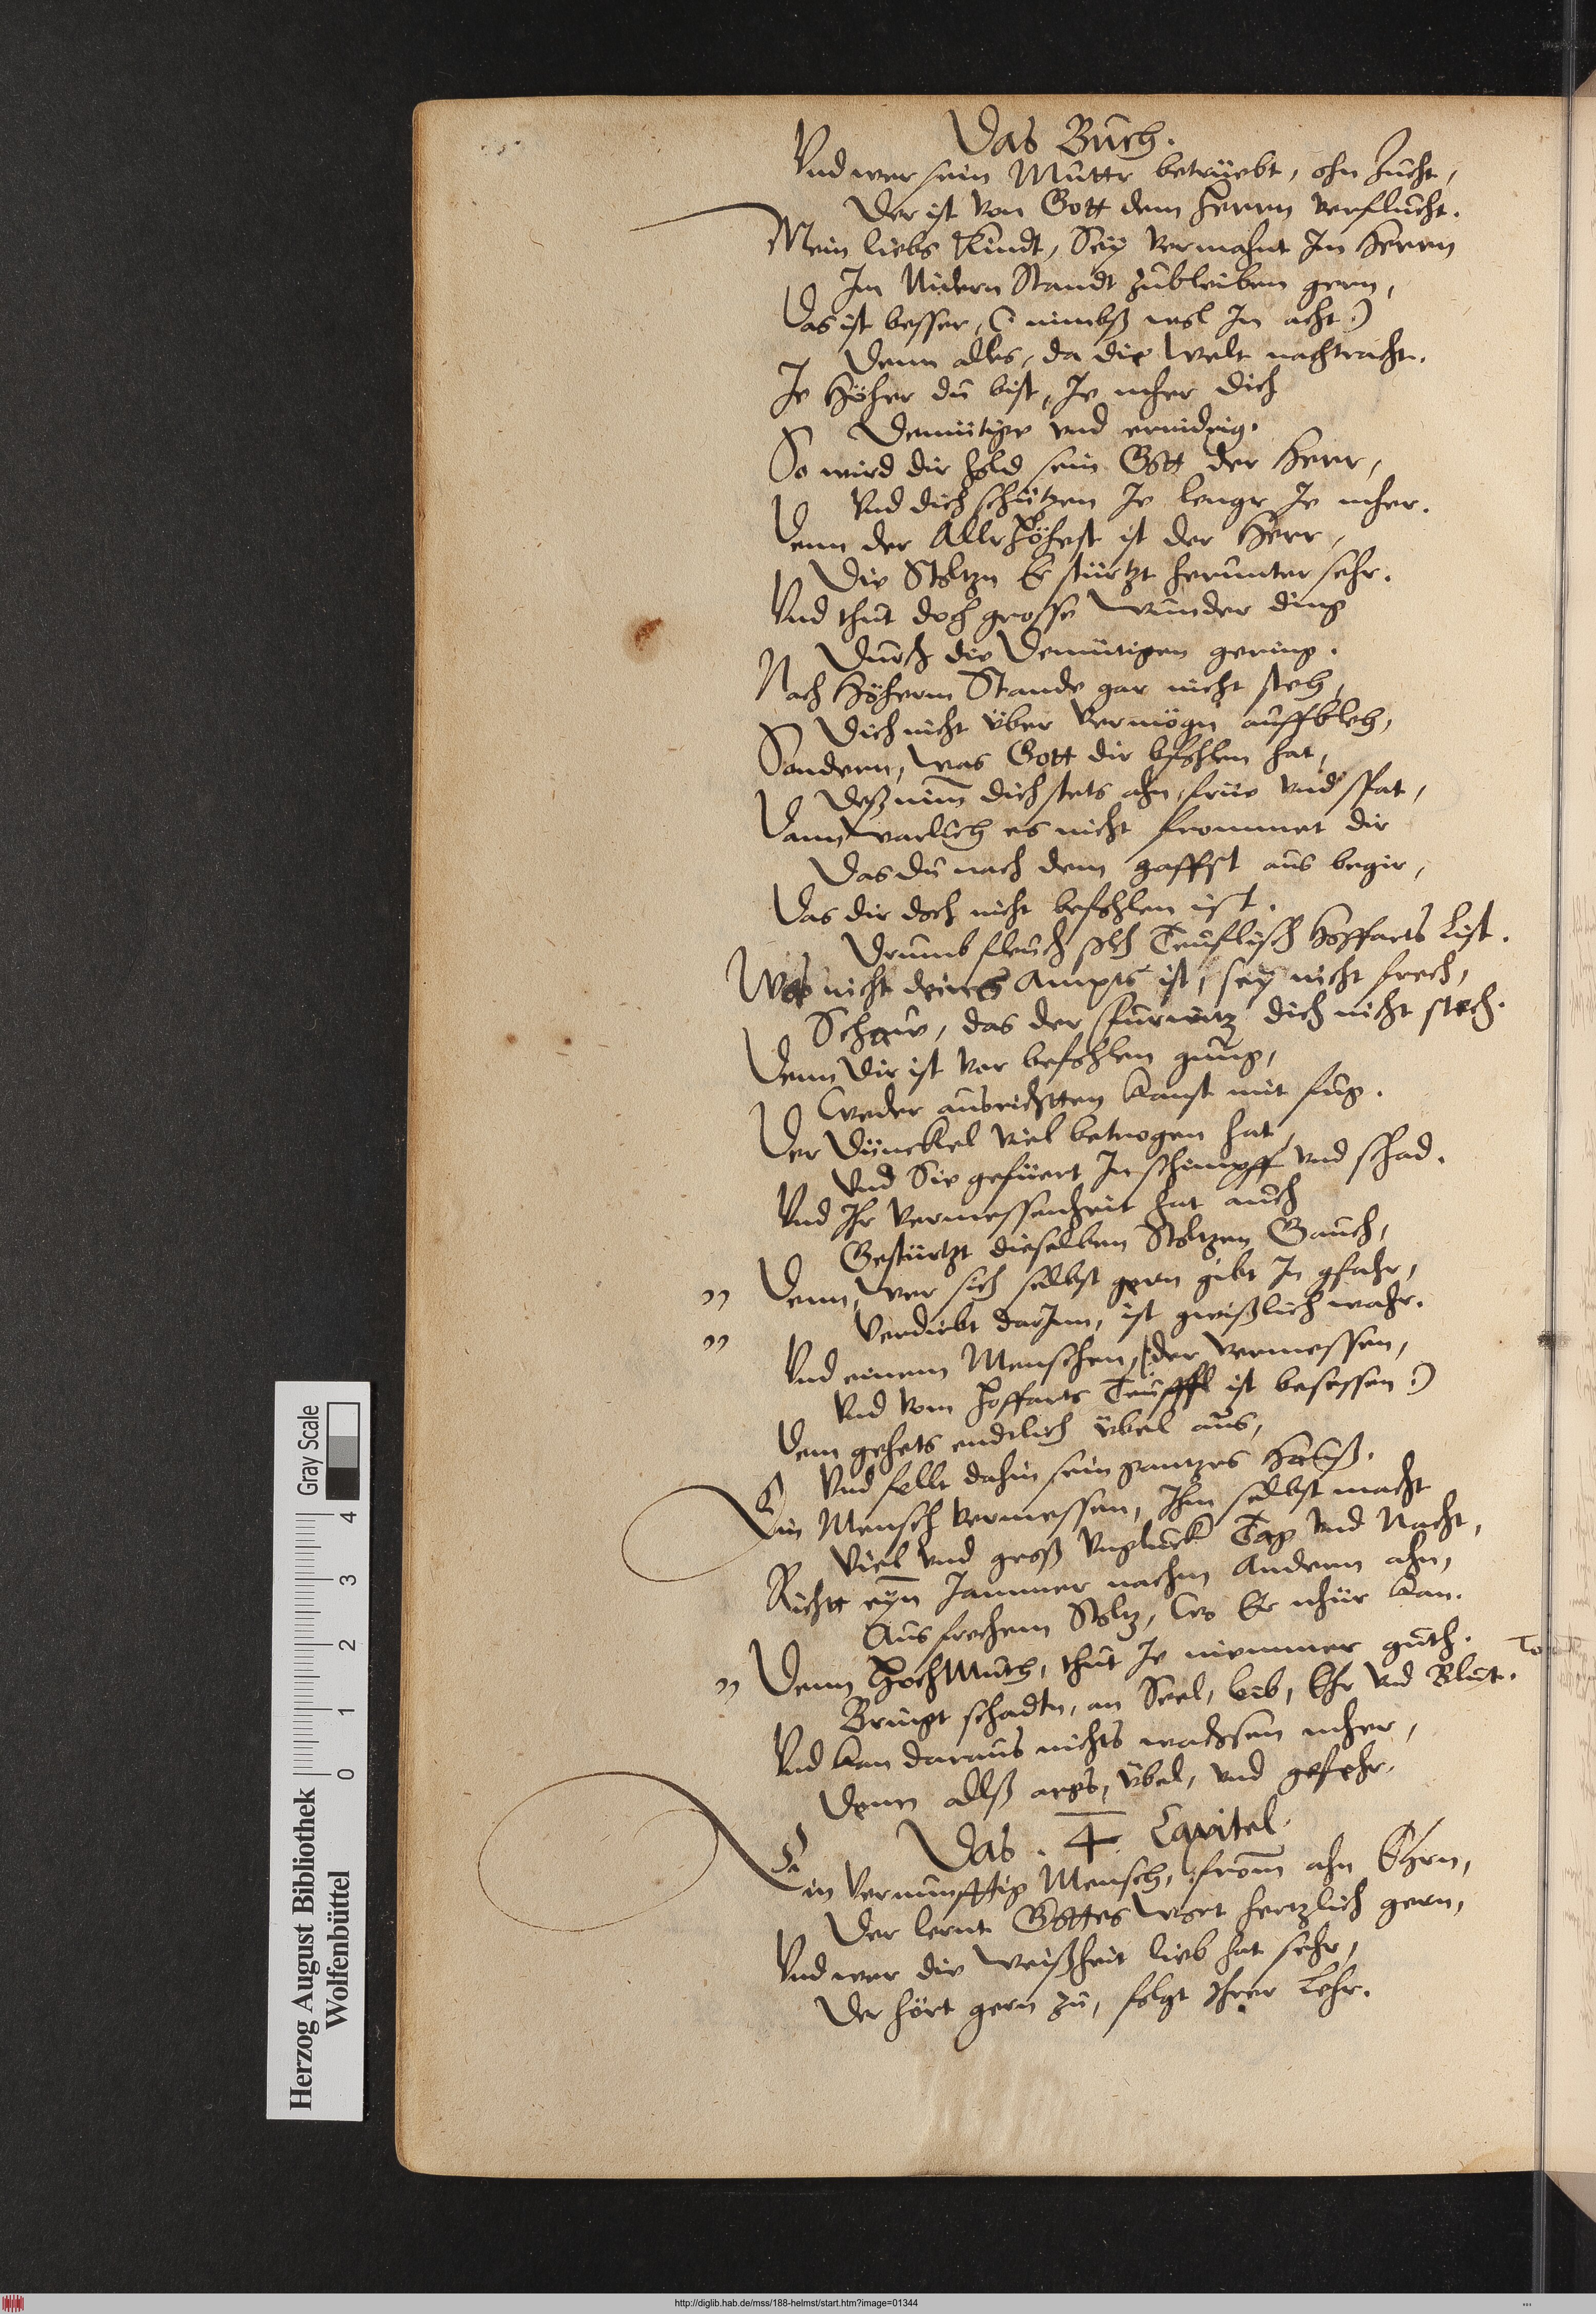 Das Buch.
Vnd wer sein Muttr betrüebt, ohn zucht,
Der ist von Gott dem Herrn verflucht.
Mein liebs Kindt, Sey vermahnt Im Herrn
Im Nidern Standt zubleiben gern,
Das ist besser, (: nimbß wol In acht:)
Denn alles, da die Welt nachtracht.
Je Höher du bist, Je mher dich
Demütige vnd ernidrig.
So wird dir hold sein Gott der Herr,
Vnd dich schützen Je lengr Je mher.
Denn der Allrhöhest ist der Herr,
Die Stoltzn Er stürtzt herunter sehr.
Vnd thut doch grosse Wunder ding
Durch die Demütigen gering.
Nach Höherm Stande gar nicht steh,
Dich nicht über Vermögn auffbleh,
Sondern, Was Gott dir bfohlen hat,
Deß nim̄ dich stets ahn, früe vnd spat,
Dann warlich es nicht frommet dir
Das du nach dem gaffst aus begir,
Das dir doch nicht befohlen ist.
Drumb fleuch solch Teuflisch Hoffarts List.
Was nicht deines Ampts ist, sey nicht frech,
Schaw, das der fürwitz dich nicht stech.
Denn Dir ist vor befohlen gnug,
Weder ausrichtten kanst mit fug.
Der Dünckel viel betrogen hat,
Vnd Sie gefüert In schimpff vnd schad.
Vnd Ihr Vermessenheit hat auch
Gestürtzt dieselben Stoltzen Gauch,
" Denn, Wer sich selbst gern gibt In gfahr,
" Verdirbt darInn, ist gwißlich wahr.
Vnd einem Menschen, (:der vermessen,
Vnd vom Hoffarts Teuffl ist besessen:)
Dem gehets endtlich übel aus,
Vnd fellt dahin sein gantzes Hauß.
Ein Mensch vermessen, Ihm selbst macht
Viel vnd groß vnglück Tag vnd Nacht,
Richtt eyn Jammer nachm Andern ahn,
Aus frechem Stoltz, Wo Er nhur kan.
" Denn HochMuth, thut Je nimmer guth.
Bringt schadtn, an Seel, leib, Ehr vnd Blut.
Vnd kan daraus nichts wachssen mher,
Denn allß args, übel, vnd gefehr.
Das . 4. Capitel.
Ein Vernunfftig Mensch, from̄ ahn Ehrn,
Der lernt Gottes Wort hertzlich gern,
Vnd wer die Weißheit lieb hat sehr,
Der hört gern zu, folgt Ihrer Lehr.
Herzog August Bibliothek
Wolfenbüttel
0 1 2 3 4
Gray Scale
http://diglib.hab.de/mss/188-helmst/start.htm?image=01344